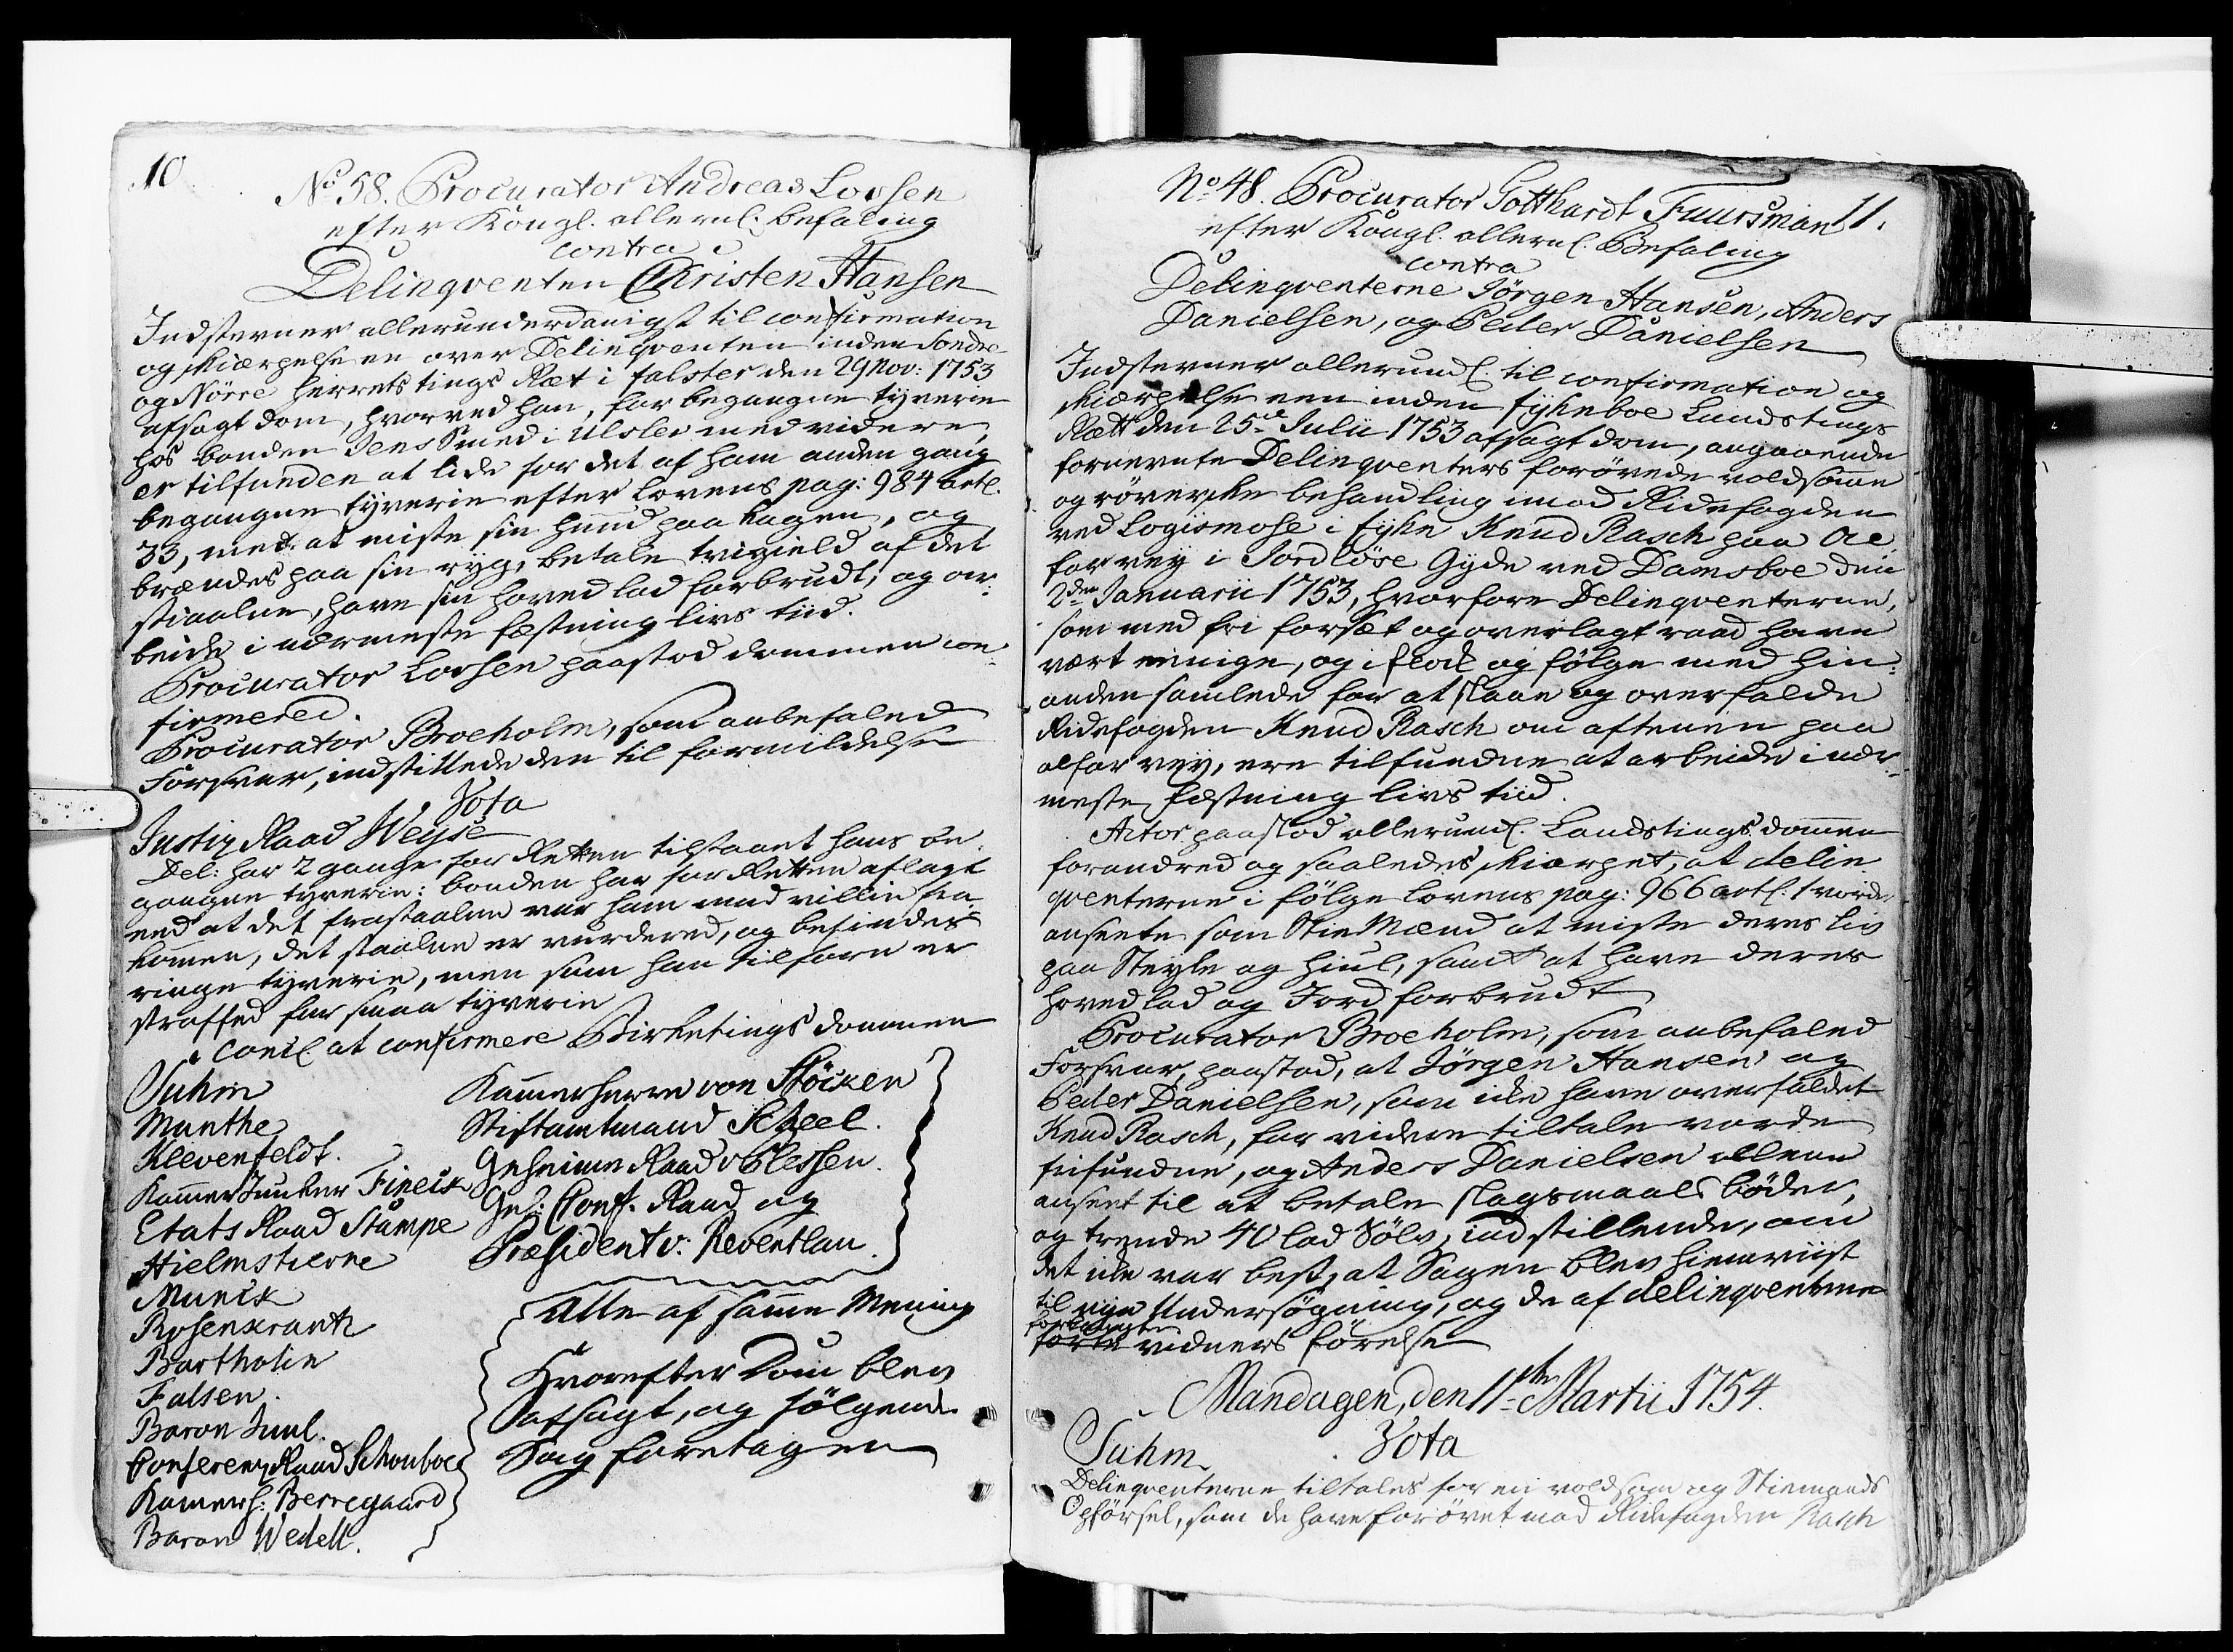 10
No 58. Procurator Andreas Lossen
efter Kongl. allern: befaling
contra
Delinqventen Christen Hansen
Indstevner allerunderdanigst til confirmation
og skiærpelse en over Delinqventen inden Sondre
og Nörre herrets tings Ræt i falster den 29 Nov: 1753
afsagt dom, hvorved han, for begangne tyverie
hos bonden Jens Smed i Ulslev med videre,
er tilfunden at lide for det af ham anden gang
begangne tyverie efter lovens pag: 984 artl.
33, med at miste sin hund paa kagen, og
brændes paa sin ryg, betale tvigield af det
stiaalne, have sin hoved lod forbrudt, og ar-
beide i nærmeste fæstning livs tiid.
Procurator Lossen paastod dommen con-
firmered.
Procurator Broeholm, som anbefaled
Forsvar, indstillede den til formildelse
Vota
Justiz Raad Weyse
Del: har 2 gange for Retten tilstaaet hans be-
gangne tyverie: bonden har for Retten aflagt
eed at det frastaalne var ham mod villie fra-
kommen, det staalne er vurdered, og befindes
ringe tyverie, men som han tilforn er
straffed for smaa tyverie
Concl. at confirmere Birketings dommen
Suhm
Munthe
Klevenfeldt.
Kammer Junker Fineck
Etats Raad Stampe
Hielmstierne
Munck
Rosenkrantz
Bartholin
Falsen.
Baron Juul.
Conferenz Raad Schouboe
Kamerh: Berregaard
Baron Wedell.
Kammerherre von Stöcken
Stiftamtmand Scheel.
Geheime Raad v Plessen.
Geh: Conf. Raad og
Præsident v: Reventlau.
Alle af samme Mening
Hvorefter Dom blev
afsagt, og følgende
Sag foretagen
No 48. Procurator Gotthardt Fuursman 11.
efter Kongl. allern. Befaling
contra
Delinqventerne Jörgen Hansen, Anders
Danielsen, og Peder Danielsen
Indstevner allerund. til confirmation og
skiærpelse een inden fyhnboe Landstings
Rætt den 25de Julii 1753 afsagt dom, angaaende
fornevnte Delinqventers forøvede voldsomme
og røveriske behandling imod Ridefogden
ved Logismose i fyhn Knud Rasch paa al-
far vey i Jordløse Gyde ved Damsboe den
2den Januarii 1753, hvorfore Delinqventerne,
som med fri forsæt og overlagt raad have
vært eenige, og i flock og følge med hin-
anden samlede for at slaae og overfalde
Ridefogden Knud Rasch om aftenen paa
alfar vey, ere tilfundne at arbeide i nær-
meste fæstning livs tiid.
Actor paastod allerund. Landstings dommen
forandred og saaledes skiærpet, at delin
qventerne i følge lovens pag: 966 artl. 1 vorde
ansete som Stie Mænd at miste deres liv
paa Steyle og Hiul, samt at have deres
hovedlod og Jord forbrudt
Procurator Broeholm, som anbefaled
Forsvar, paastod, at Jörgen Hansen og
Peder Danielsen, som icke have overfaldet
Knud Rasch, for videre tiltale vorde
frifundne, og Anders Danielsen allene
anseet til at betale slagsmaals bøder,
og trende 40 lod Sølv, indstillende, om
det icke var best, at Sagen blev hiemviist
til nye Undersøgning, og de af delinqventerne
forlangte
førte vidners førelse
Mandagen, den 11te Martii 1754.
Vota
Suhm
Delinqventerne tiltales for en voldsom og Stiemands
Opførsel, som de have forøvet mod Ridefogden Rasch